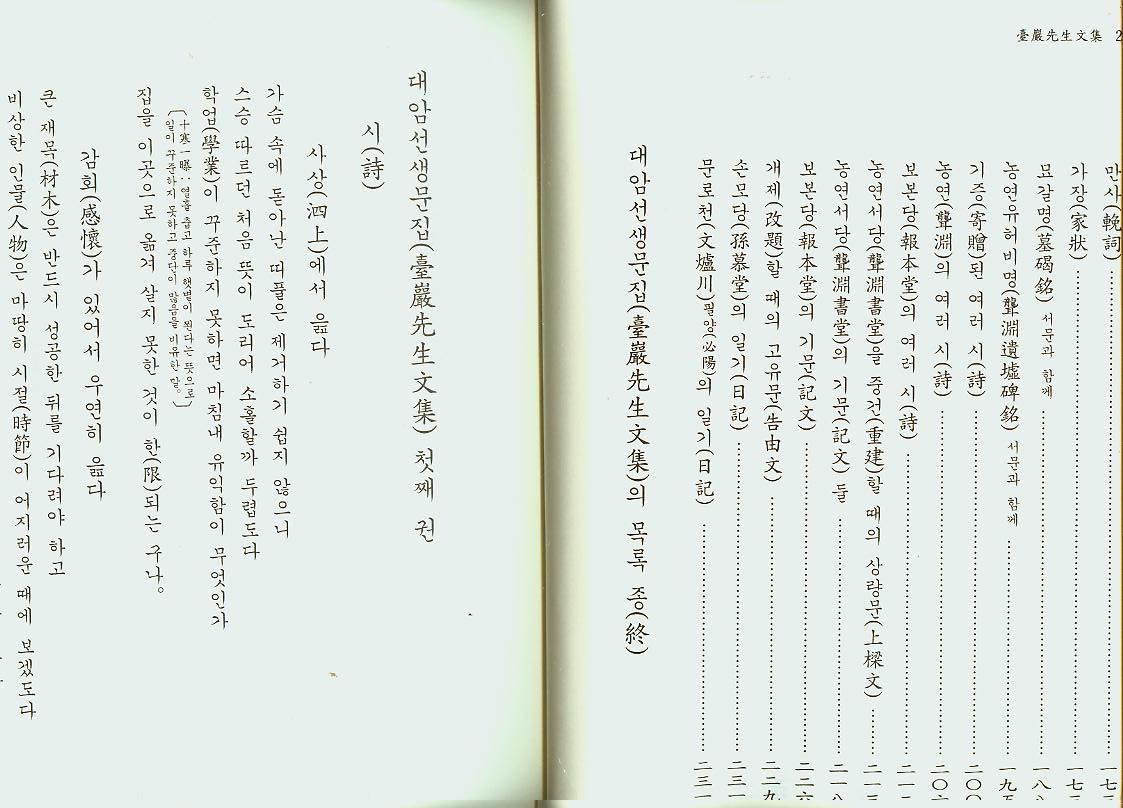 臺巖先生文集 2
만사(輓詞)
가장(家狀)
묘갈명(墓碣銘) 서문과 함께
농연유허비명(聾淵遺墟碑銘) 서문과 함께
기증(寄贈)된 여러 시(詩)
농연(聾淵)의 여러 시(詩)
보본당(報本堂)의 여러 시(詩)
농연서당(聾淵書堂)을 중건(重建)할 때의 상량문(上樑文)
농연서당(聾淵書堂)의 기문(記文)들
보본당(報本堂)의 기문(記文)
개제(改題)할 때의 고유문(告由文)
손모당(孫慕堂)의 일기(日記)
문로천(文爐川) 필양(必陽)의 일기(日記)
대암선생문집(臺巖先生文集)의 목록 종(終)
대암선생문집(臺巖先生文集) 첫째 권
시(詩)
사상(泗上)에서 읊다
가슴 속에 돋아난 띠풀은 제거하기 쉽지 않으니
스승 따르던 처음 뜻이 도리어 소홀할까 두렵도다
학업(學業)이 꾸준하지 못하면 마침내 유익함이 무엇인가
〔十寒一曝 : 열흘 춥고 하루 햇볕이 쬔다는 뜻으로
일이 꾸준하지 못하고 중단이 많음을 비유한 말。〕
집을 이곳으로 옮겨 살지 못한 것이 한(限)되는 구나。
감회(感懷)가 있어서 우연히 읊다
큰 재목(材木)은 반드시 성공한 뒤를 기다려야 하고
비상한 인물(人物)은 마땅히 시절(時節)이 어지러운 때에 보겠도다